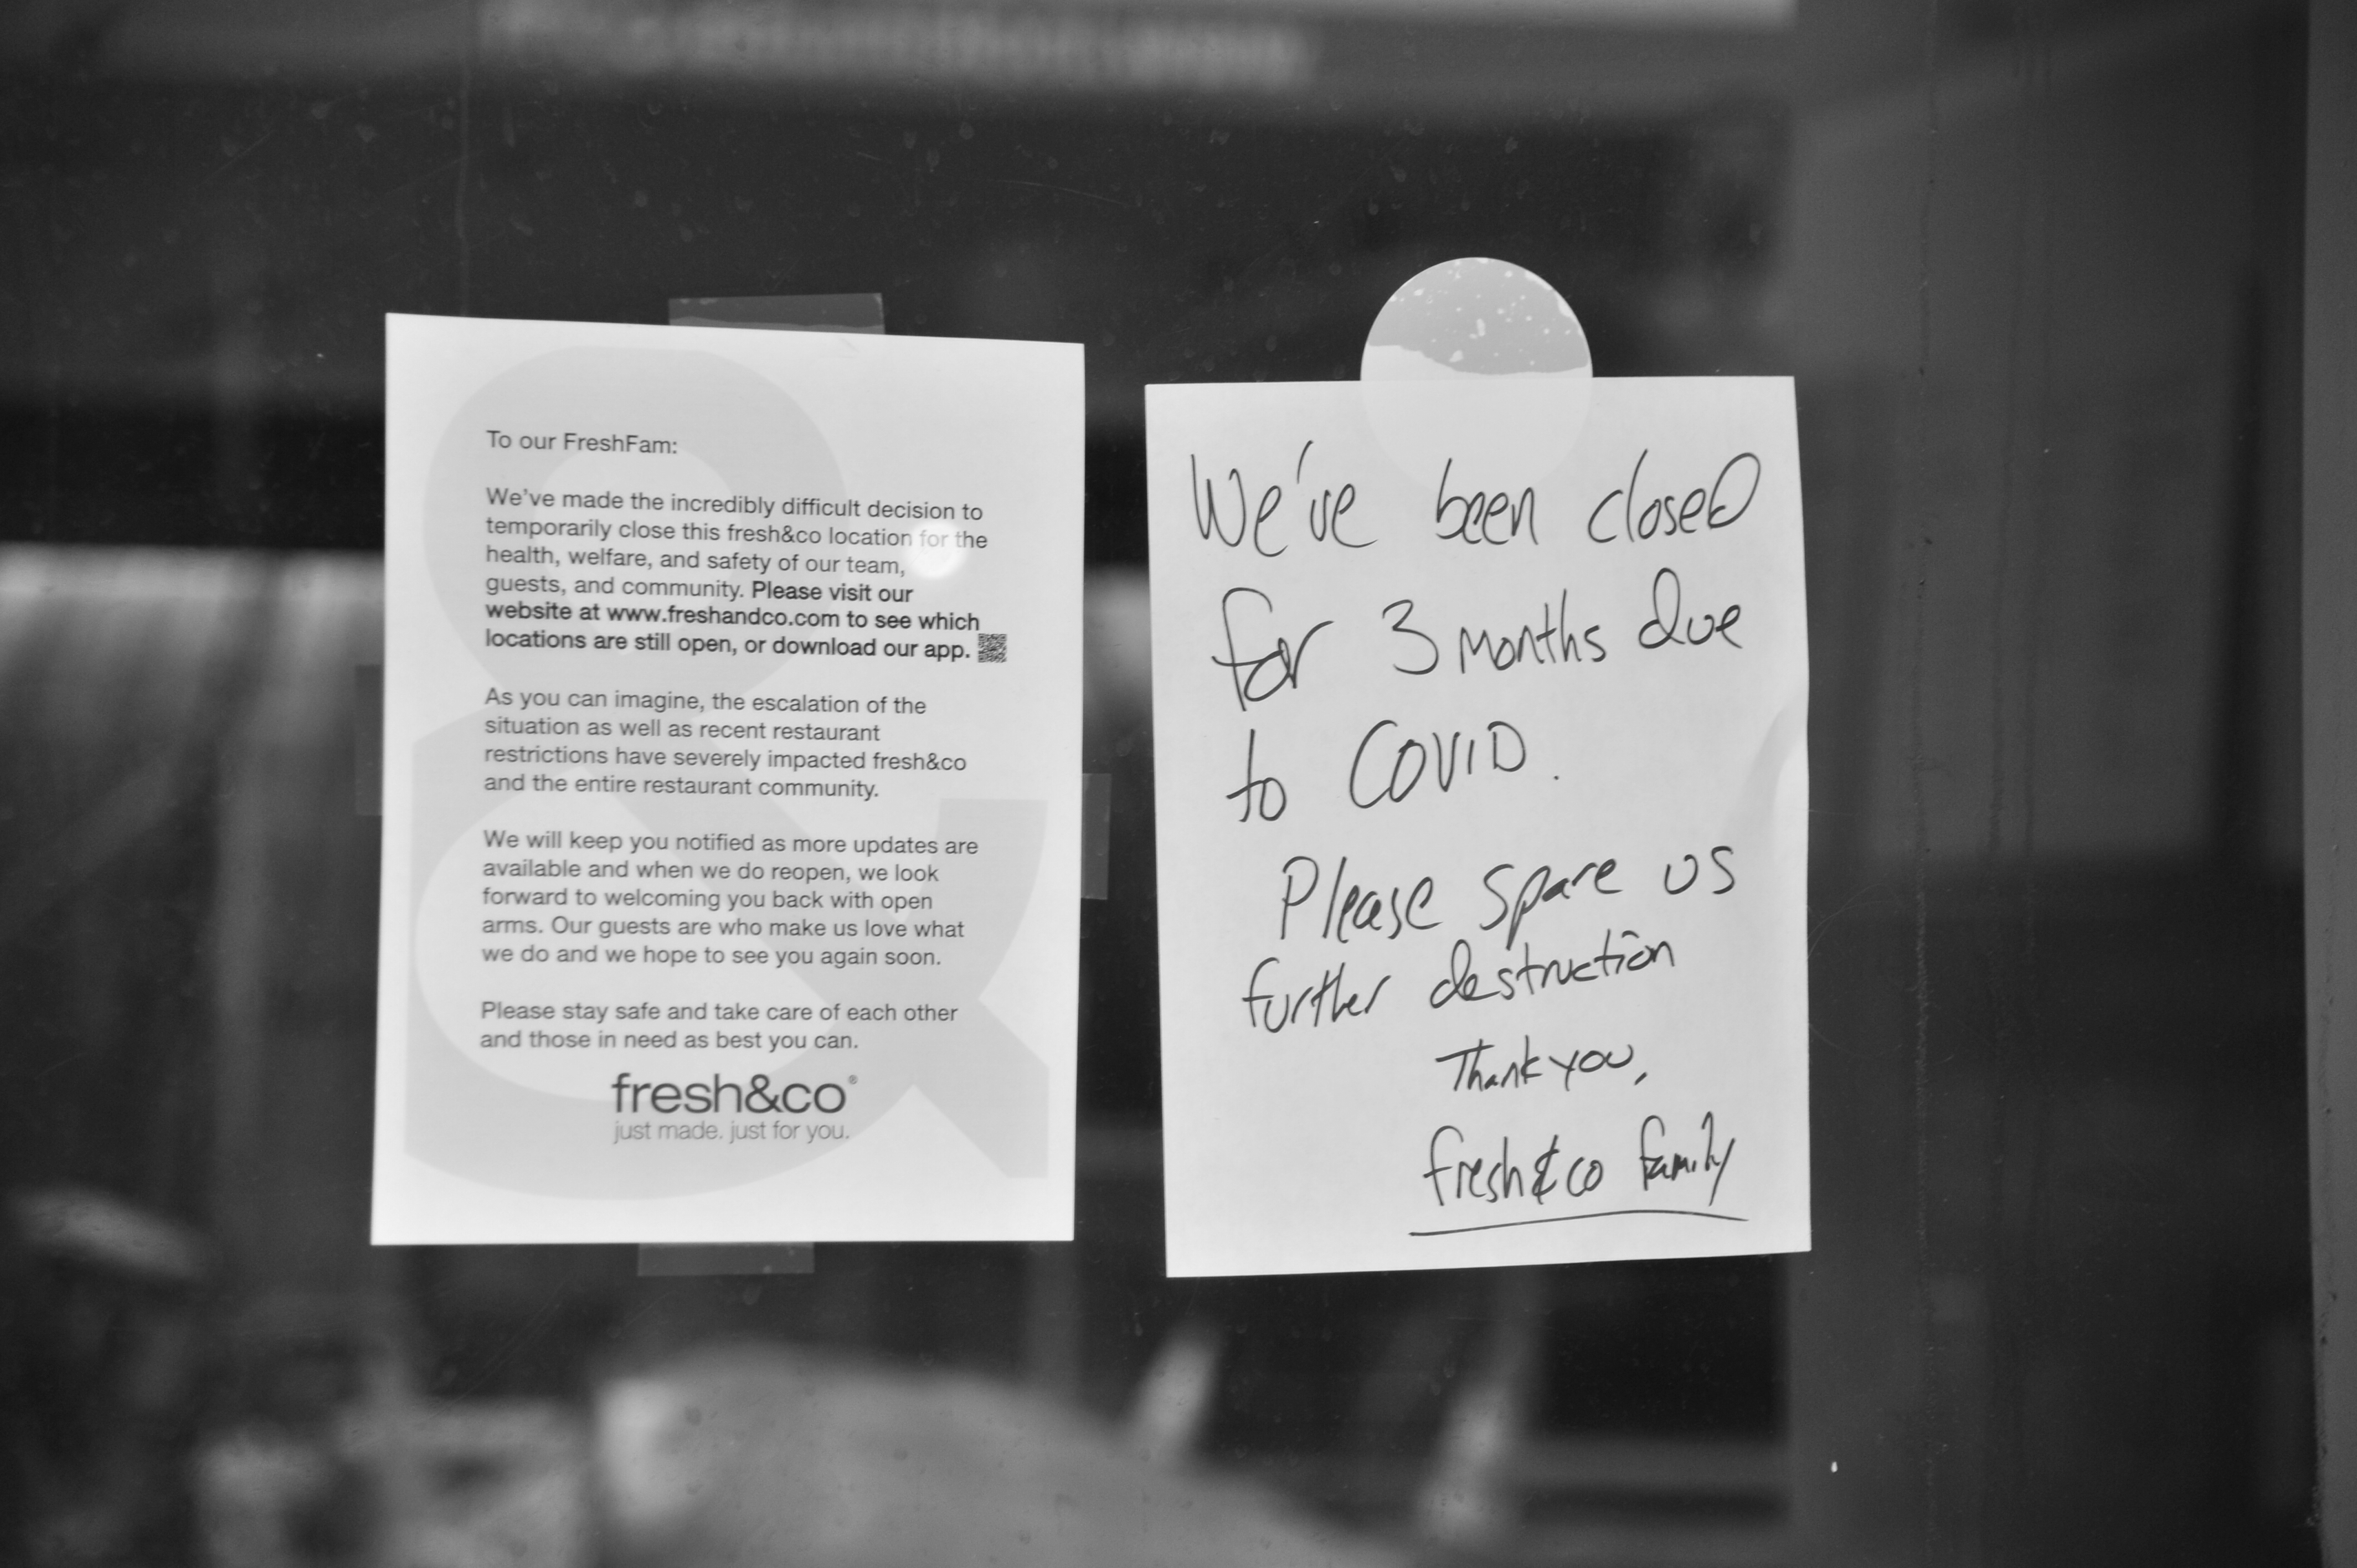 To our FreshFam:
We've made the incredibly difficult decision to
temporarily close this fresh&co location for the
health, welfare, and safety of our team,
guests, and community. Please visit our
website at www.freshandco.com to see which
locations are still open, or download our app.
As you can imagine, the escalation of the
situation as well as recent restaurant
restrictions have severely impacted fresh&co
and the entire restaurant community.
We will keep you notified as more updates are
available and when we do reopen, we look
forward to welcoming you back with open
arms. Our guests are who make us love what
we do and we hope to see you again soon.
Please stay safe and take care of each other
and those in need as best you can.
fresh&co®
just made. just for you.
We've been closed
for 3 months due
to COVID.
Please spare us
further destruction
Thank you,
fresh&co family